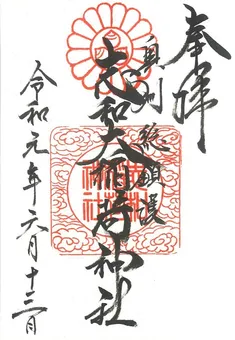 奉拝
奥州総鎮護
志和大稲荷神社
令和元年六月十三日